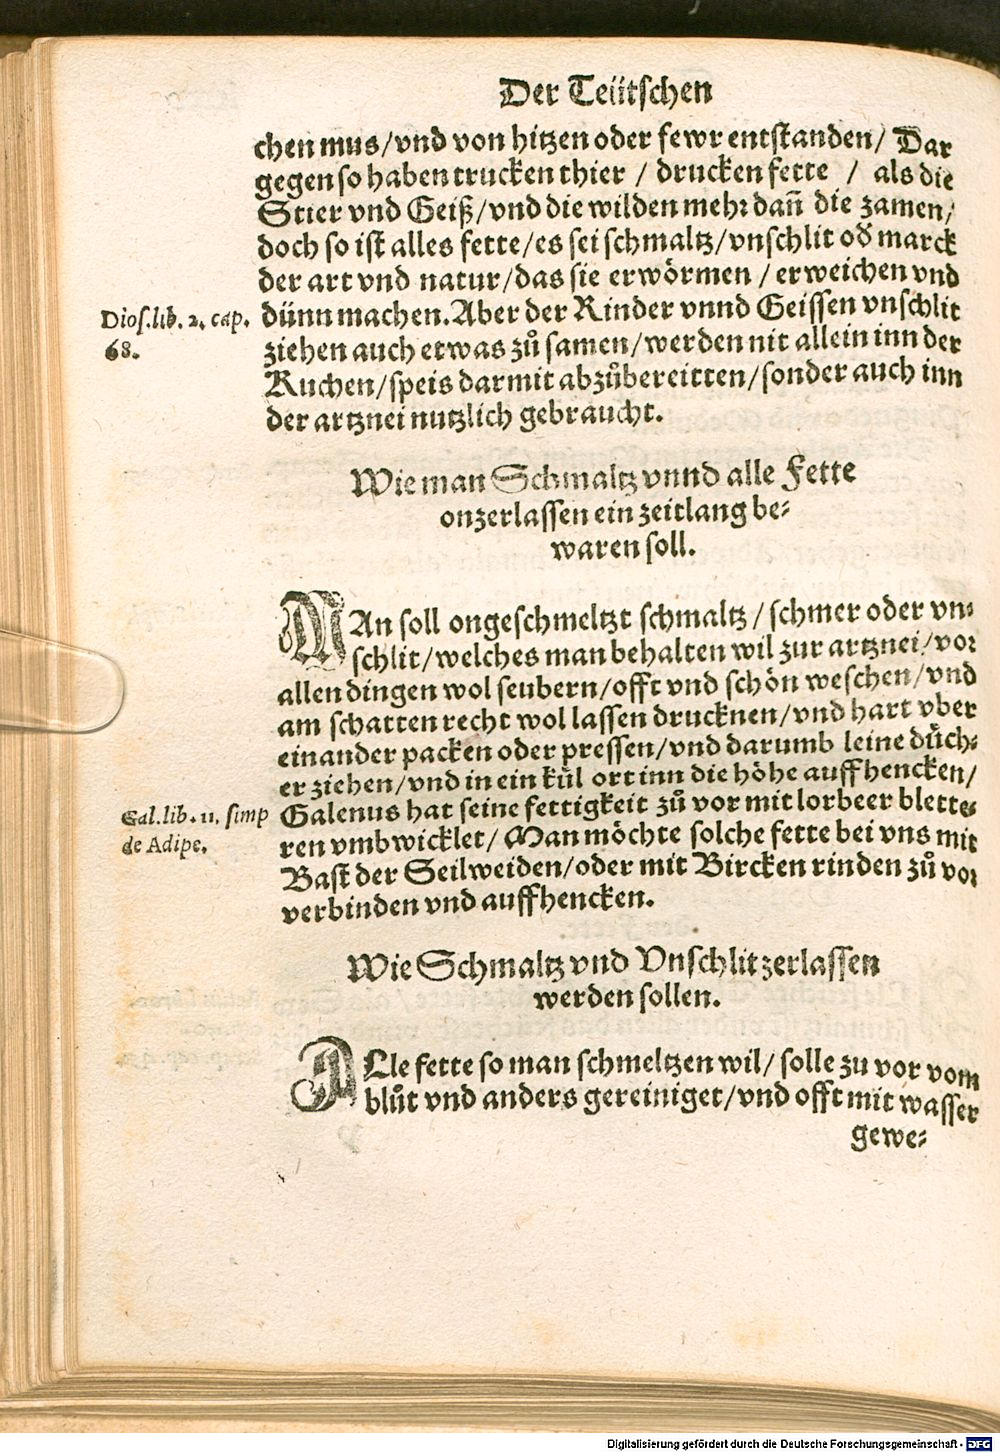 Der Teütschen
chen mus/vnd von hitzen oder fewr entstanden/ Dar
gegen so haben trucken thier / drucken fette / als die
Stier vnd Geiß/vnd die wilden mehr dañ die zamen/
doch so ist alles fette/es sei schmaltz/vnschlit oď marck
der art vnd natur/das sie erwörmen / erweichen vnd
dünn machen.Aber der Rinder vnnd Geissen vnschlit
ziehen auch etwas zůsamen/werden nit allein inn der
Kuchen/speis darmit abzůbereitten/sonder auch inn
der artznei nutzlich gebraucht.
Dios.lib. 2. cap.
68.
Wie man Schmaltz vnnd alle Fette
onzerlassen ein zeitlang be⸗
waren soll.
MAn soll ongeschmeltzt schmaltz/schmer oder vn⸗
schlit/welches man behalten wil zur artznei/vor
allen dingen wol seubern/offt vnd schön weschen/vnd
am schatten recht wol lassen drucknen/vnd hart vber
einander packen oder pressen/vnd darumb leine düch⸗
er ziehen/vnd in ein kül ort inn die höhe auffhencken/
Galenus hat seine fettigkeit zů vor mit lorbeer blette⸗
ren vmbwicklet/ Man möchte solche fette bei vns mit
Bast der Seilweiden/oder mit Bircken rinden zů vor
verbinden vnd auffhencken.
Gal.lib. 11. simp
de Adipe.
Wie Schmaltz vnd Vnschlit zerlassen
werden sollen.
ALle fette so man schmeltzen wil/ solle zu vor vom
blůt vnd anders gereiniget/vnd offt mit wasser
gewe⸗
Digitalisierung gefördert durch die Deutsche Forschungsgemeinschaft - DFG